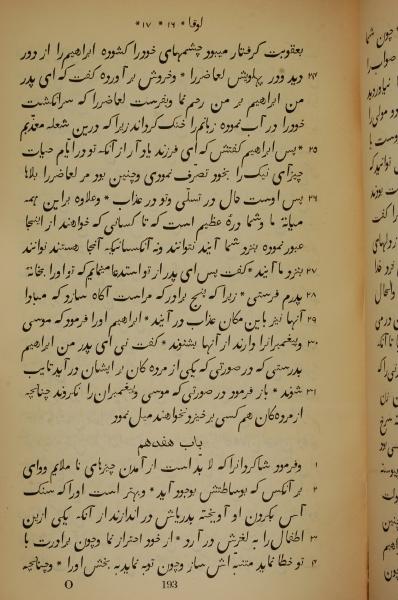 لوقا * ۱۶ * ۱۷ *
بعقوبت گرفتار میبود چشمهای خود را کشوده ابراهیم را از دور
۲۴ دید ودر پهلویش لعاضر را * وخروش بر آورده گفت که ای پدر
من ابراهیم بر من رحم نما وبفرست لعاضر را که سر انگشت
خودرا در آب نموده زبانم را خنک گرداند زیرا که درین شعله معذبم
۲۵ * پس ابراهیم گفتش که ای فرزند یاد آر از آنکه تو در ایام حیات
چیزهای نیک را بخود تصرف نمودی وچنین بود مر لعاضر را بلاها
۲۶ پس اوست حال در تسلی وتو در عذاب * وعلاوه بر این همه
میانهٔ ما وشما درهٔ عظیم است که تا کسانی که خواهند از اینجا
عبور نموده بنزد شما آیند نتوانند ونه آنکسانیکه آنجا هستند توانند
۲۷ بنزد ما آیند * گفت پس ای پدر از تو استدعا مینمایم که تو او را بخانهٔ
۲۸ پدرم فرستی * زیرا که پنج برادر که مراست آگاه سازد که مبادا
۲۹ آنها نیز باین مکان عذاب در آیند * ابراهیم او را فرمود که موسی
۳۰ وپیغمبرانرا دارند از آنها بشنوند * گفت نی ای پدر من ابراهیم
بدرستی که در صورتی که یکی از مرده کان بر ایشان در آید تایب
۳۱ شوند * باز فرمود در صورتی که موسی وپیغمبران را نگروند چنانچه
از مرده کان هم کسی بر خیزد نخواهند میل نمود
باب هفدهم
۱ وفرمود شاگردانرا که لا بد است از آمدن چیزهای نا ملایم ووای
۲ بر آنکس که بوساطتش بوجود آید * وبهتر است اورا که سنک
آسی بگردن او آویخته بدریاش در اندازند از آنکه یکی ازین
۳ اطفال را به لغزش در آرد * از خود احتراز نما وچون برادرت با
۴ تو خطا نماید متنبه اش ساز وچون توبه نماید به بخش اورا * وچنانچه
O 193